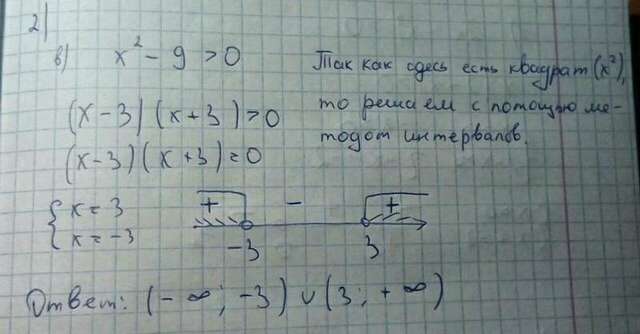 2)
в) x² - 9 > 0
Так как здесь есть квадрат (x²),
то решаем с потощью ме-
тодот интервалов.
(x - 3) (x + 3) > 0
(x - 3) (x + 3) = 0
{ x = 3
x = -3
+ - +
-3 3
Ответ: (- ∞; -3) ∪ (3; + ∞)